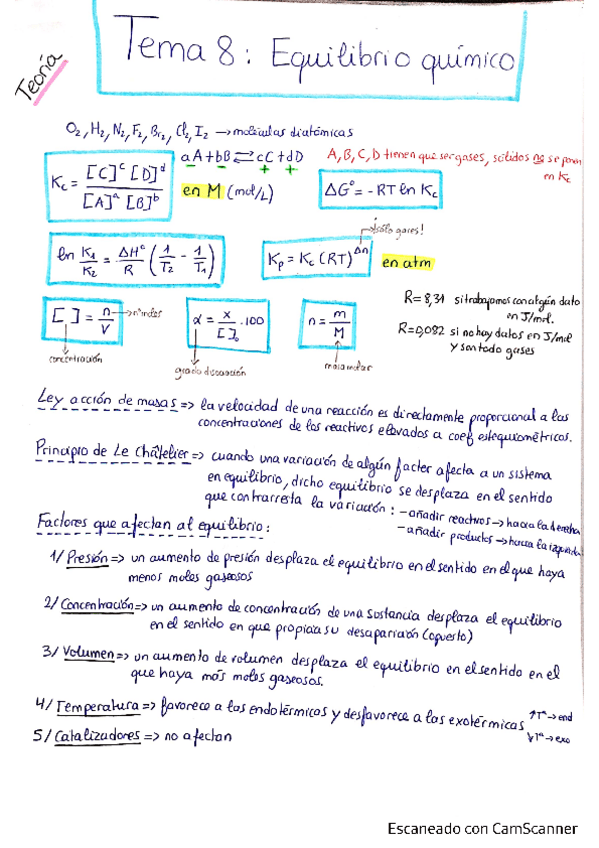 Teoría
Tema 8: Equilibrio químico
O₂, H₂, N₂, F₂, Br₂, Cl₂, I₂ → moléculas diatómicas
aA + bB ⇌ cC + dD
A, B, C, D tienen que ser gases, sólidos no se ponen
en Kc
Kc = [C]ᶜ [D]ᵈ / [A]ᵃ [B]ᵇ
en M (mol/L)
ΔG° = -RT ln Kc
¡sólo gases!
ln K₁/K₂ = ΔH°/R (1/T₂ - 1/T₁)
Kp = Kc (RT)^Δn
en atm
[ ] = n/V → nº moles
concentración
α = x/[ ]₀ · 100
grado disociación
n = m/M
masa molar
R = 8,31 si trabajamos con algún dato
en J/mol.
R = 0,082 si no hay datos en J/mol
y son todo gases
Ley acción de masas => la velocidad de una reacción es directamente proporcional a las
concentraciones de los reactivos elevados a coef estequiométricos.
Principio de Le Châtelier => cuando una variación de algún factor afecta a un sistema
en equilibrio, dicho equilibrio se desplaza en el sentido
que contrarresta la variación: - añadir reactivos → hacia la derecha
- añadir productos → hacia la izquierda
Factores que afectan al equilibrio:
1/ Presión => un aumento de presión desplaza el equilibrio en el sentido en el que haya
menos moles gaseosos
2/ Concentración => un aumento de concentración de una sustancia desplaza el equilibrio
en el sentido en que propicia su desaparición (opuesto)
3/ Volumen => un aumento de volumen desplaza el equilibrio en el sentido en el
que haya más moles gaseosos.
4/ Temperatura => favorece a las endotérmicos y desfavorece a las exotérmicas ↑Tª → end
↓Tª → exo
5/ Catalizadores => no afectan
Escaneado con CamScanner